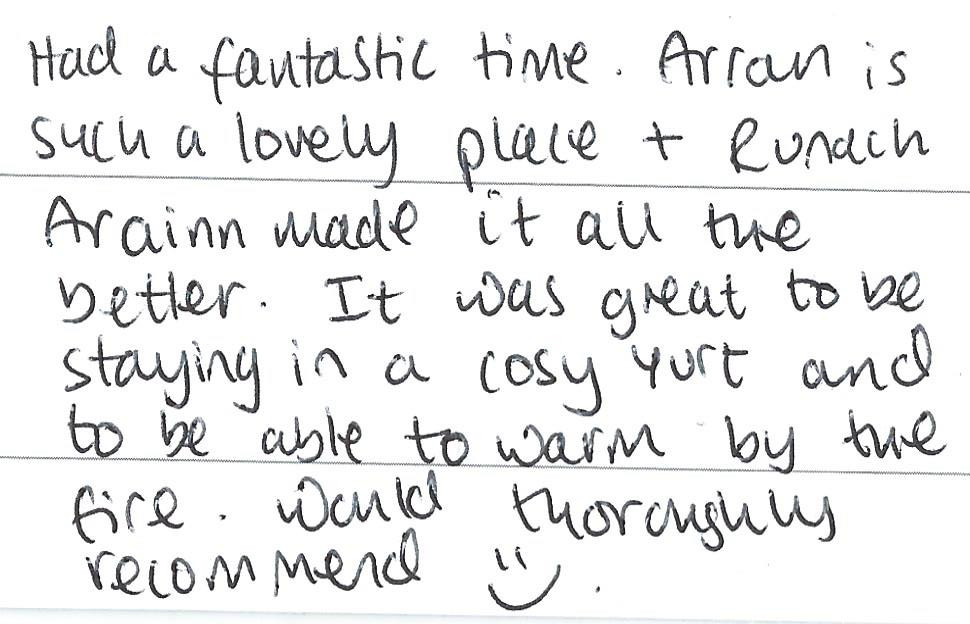 Had a fantastic time. Arran is
such a lovely place + Runach
Arainn made it all the
better. It was great to be
staying in a cosy yurt and
to be able to warm by the
fire. Would thoroughly
recommend ":) .